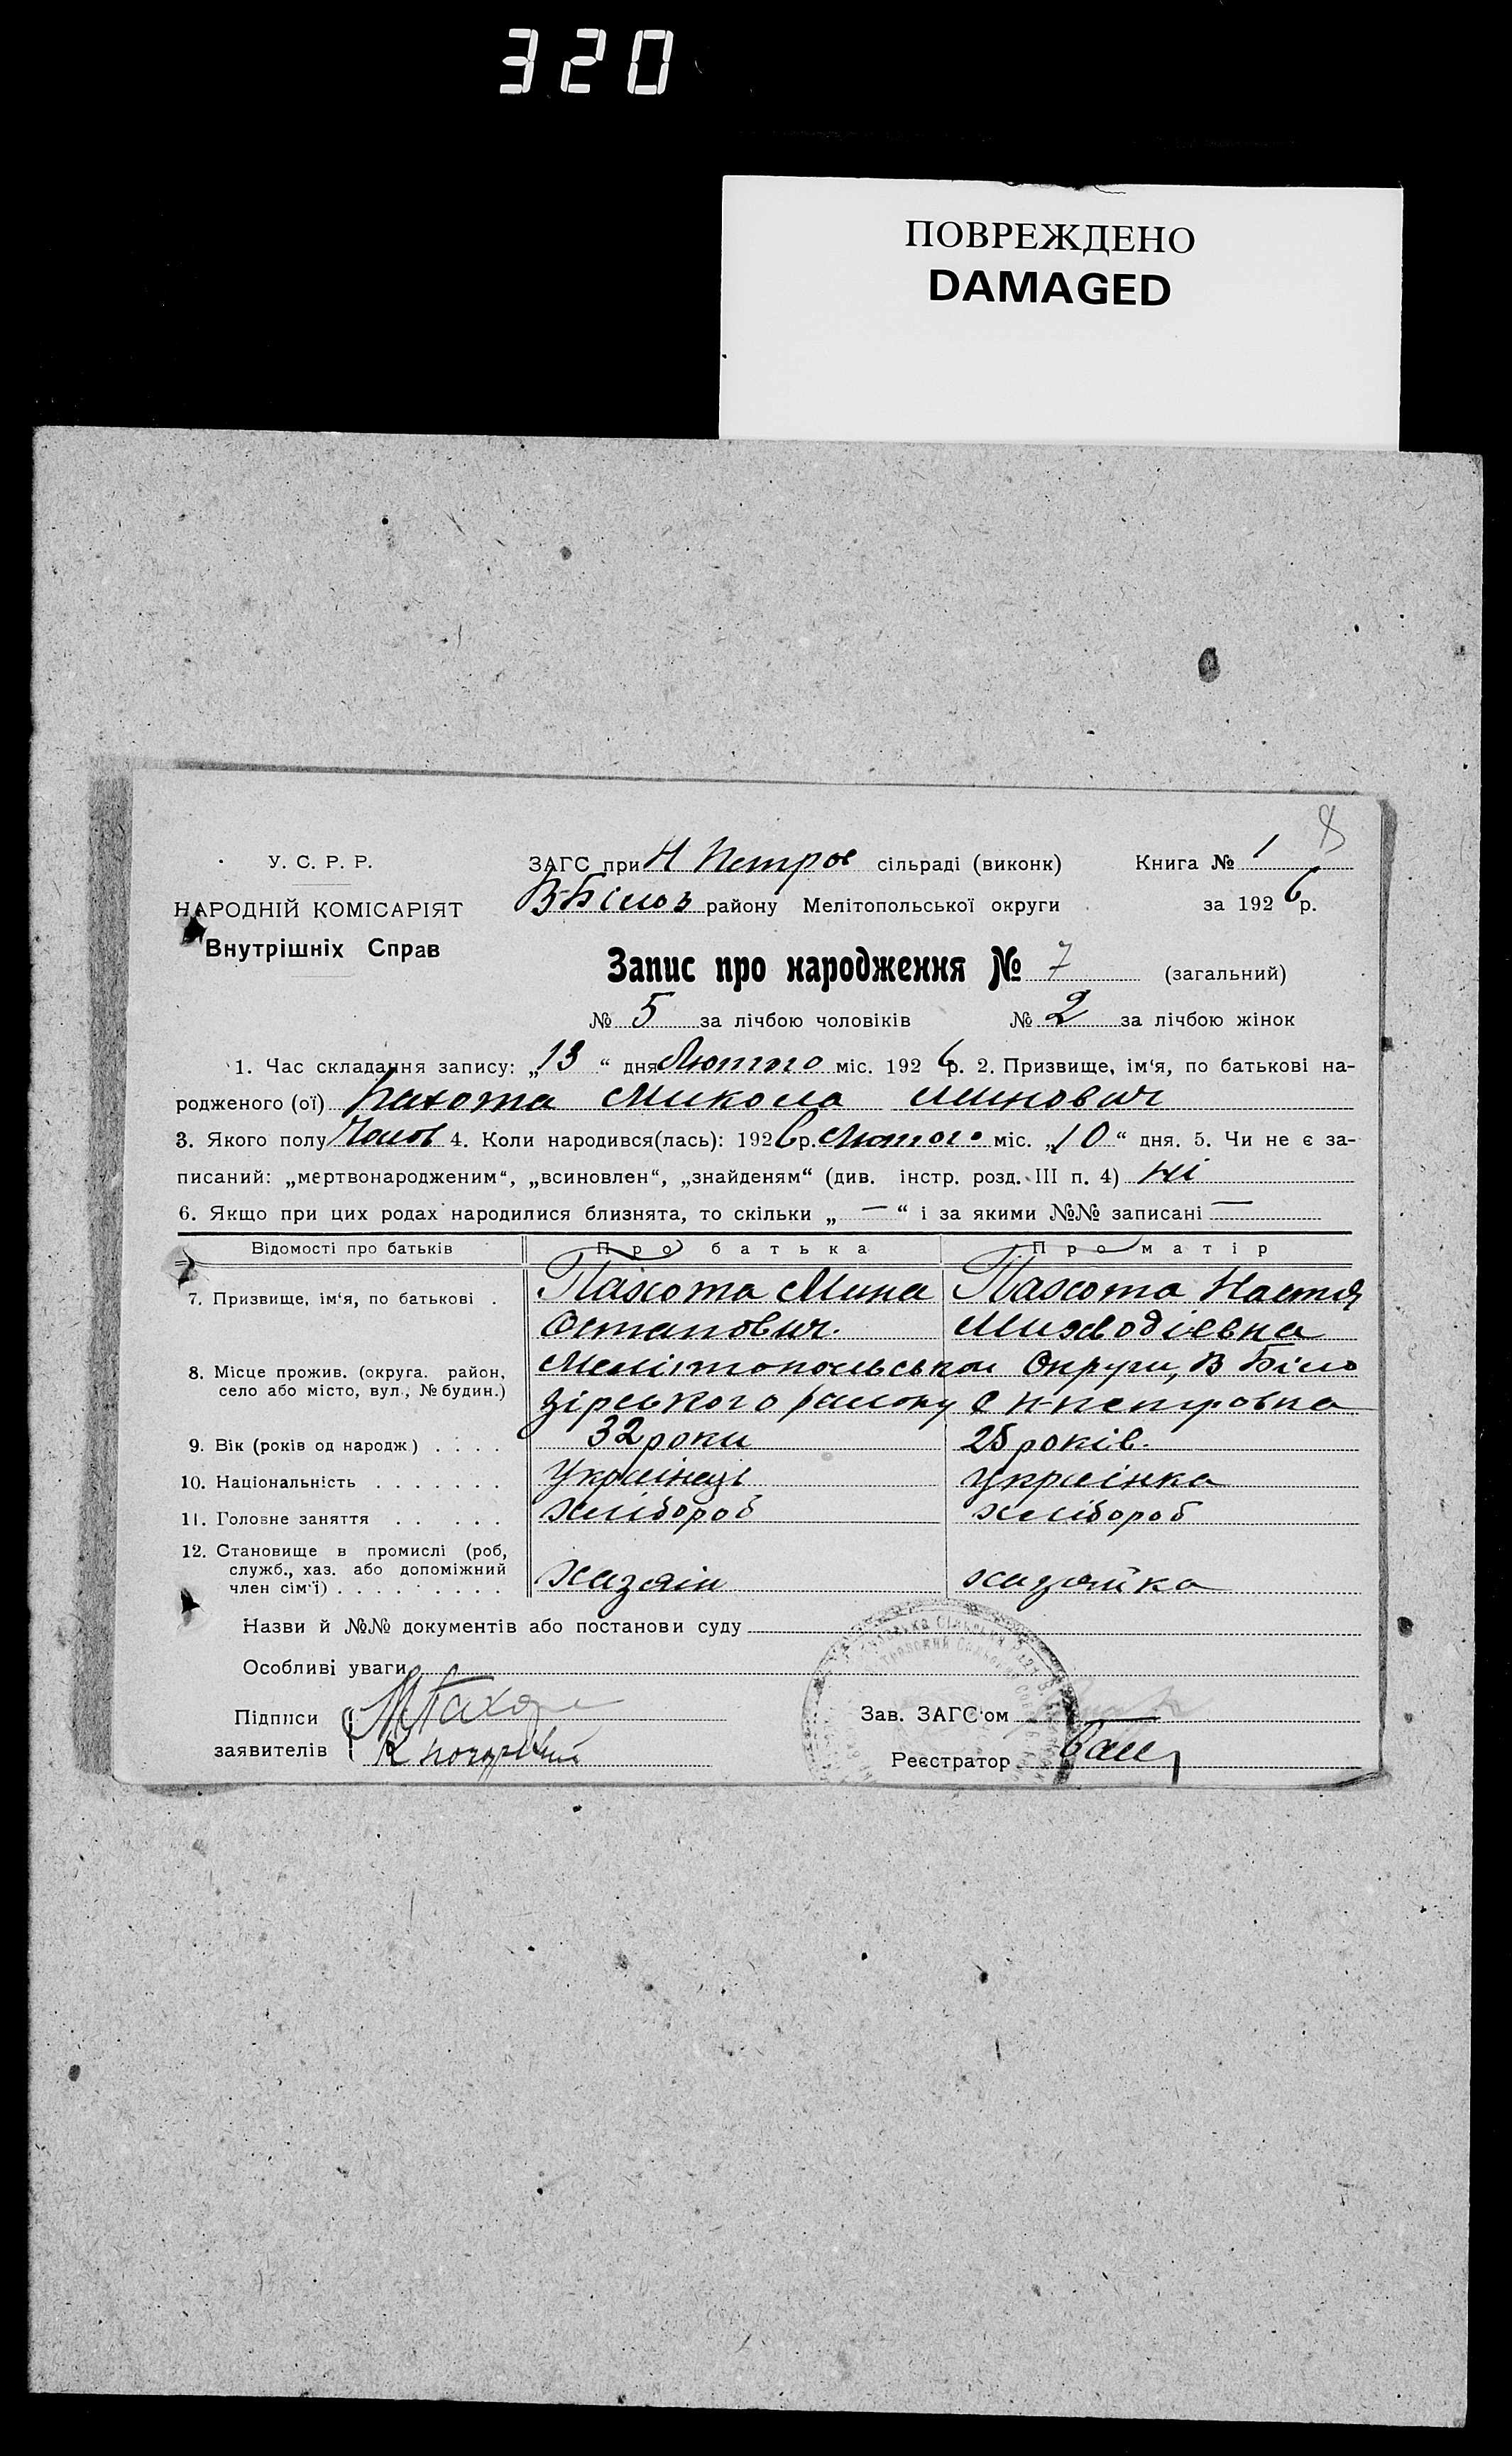 320
ПОВРЕЖДЕНО
DAMAGED
8
У. С. Р. Р.
ЗАГС при Н Петров сільраді (виконк) Книга № 1
НАРОДНІЙ КОМІСАРІЯТ
В-Білоз району Мелітопольської округи за 1926 р.
Внутрішніх Справ
Запис про народження № 7 (загальний)
№ 5 за лічбою чоловіків № 2 за лічбою жінок
1. Час складання запису: „13“ дня Лютого міс. 1926 р. 2. Призвище, ім‘я, по батькові на-
родженого (ої) Пахота Микола Минович
3. Якого полу Чолов 4. Коли народився(лась): 1926 р. Лютого міс. „10“ дня. 5. Чи не є за-
писаний: „мертвонародженим“, „всиновлен“, „знайденям“ (див. інстр. розд. III п. 4) Ні
6. Якщо при цих родах народилися близнята, то скільки „ — “ і за якими №№ записані —
Відомості про батьків Про батька Про матір
7. Призвище, ім‘я, по батькові . Пахота Мина Пахота Настя
Остапович. Мефодіевна
8. Місце прожив. (округа. район, село або місто, вул., № будин.) Мелітопольськои Округи, В Біло
зірського району с Н-петровка
9. Вік (років од народж) . . . . 32 роки 25 років.
10. Національність . . . . . . . Українець українка
11. Головне заняття . . . . . Хлібороб хлібороб
12. Становище в промислі (роб,
служб., хаз. або допоміжний
член сім‘ї) . . . . . . . . . Хазяін хазяйка
Назви й №№ документів або постанови суду
Особливі уваги
Підписи МПахота Зав. ЗАГС‘ом
заявителів Реєстратор